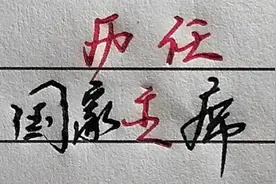 历任
国家主席